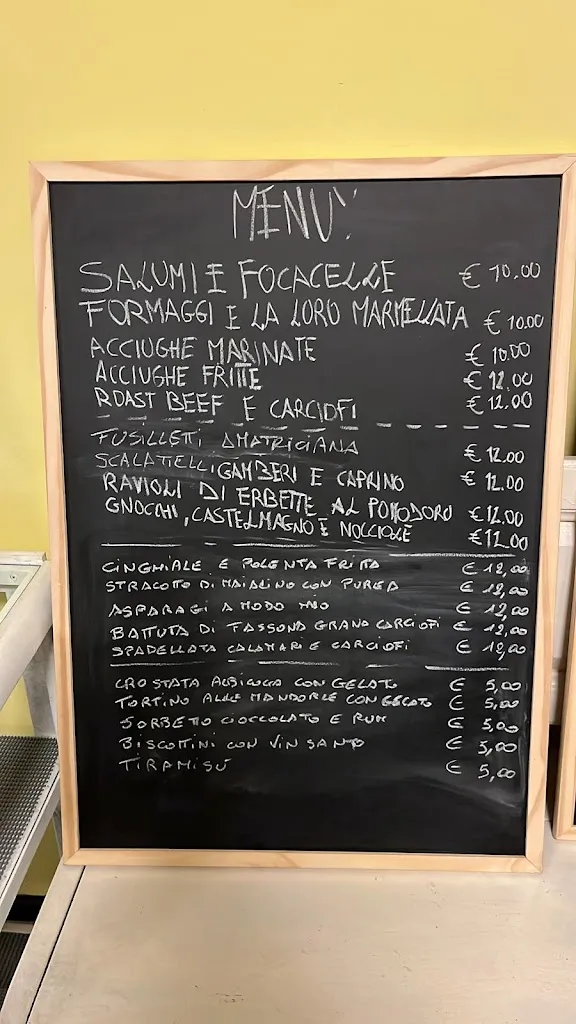 MENU'
SALUMI E FOCACELLE € 10.00
FORMAGGI E LA LORO MARMELLATA € 10.00
ACCIUGHE MARINATE € 10.00
ACCIUGHE FRITTE € 12.00
ROAST BEEF E CARCIOFI € 12.00
FUSILLETTI AMATRICIANA € 12.00
SCALATIELLI GAMBERI E CAPRINO € 12.00
RAVIOLI DI ERBETTE AL POMODORO € 12.00
GNOCHI, CASTELMAGNO E NOCCIOLE € 12.00
CINGHIALE E POLENTA FRITTA € 12,00
STRACOTTO DI MAIALINO CON PUREA € 12,00
ASPARAGI A MODO MIO € 12,00
BATTUTA DI FASSONA GRANA CARCIOFI € 12,00
SPADELLATA CALAMARI E CARCIOFI €
CROSTATA ALBICOCCA CON GELATO € 5,00
TORTINO ALLE MANDORLE CON GELATO € 5,00
SORBETTO CIOCCOLATO E RUM € 5,00
BISCOTTINI CON VIN SANTO € 5,00
TIRAMISÚ € 5,00